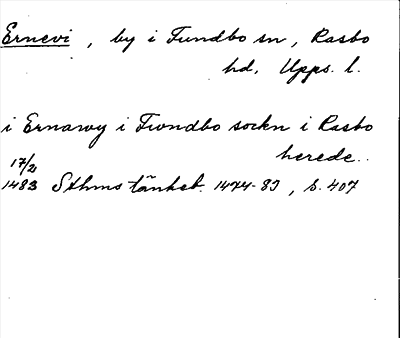 Ernevi, by i Fundbo sn, Rasbo
hd, Upps. l.
i Ernawy i Fwndbo sockn i Rasbo
herede..
17/2
1483 Sthms tänkeb. 1474-83, s. 407